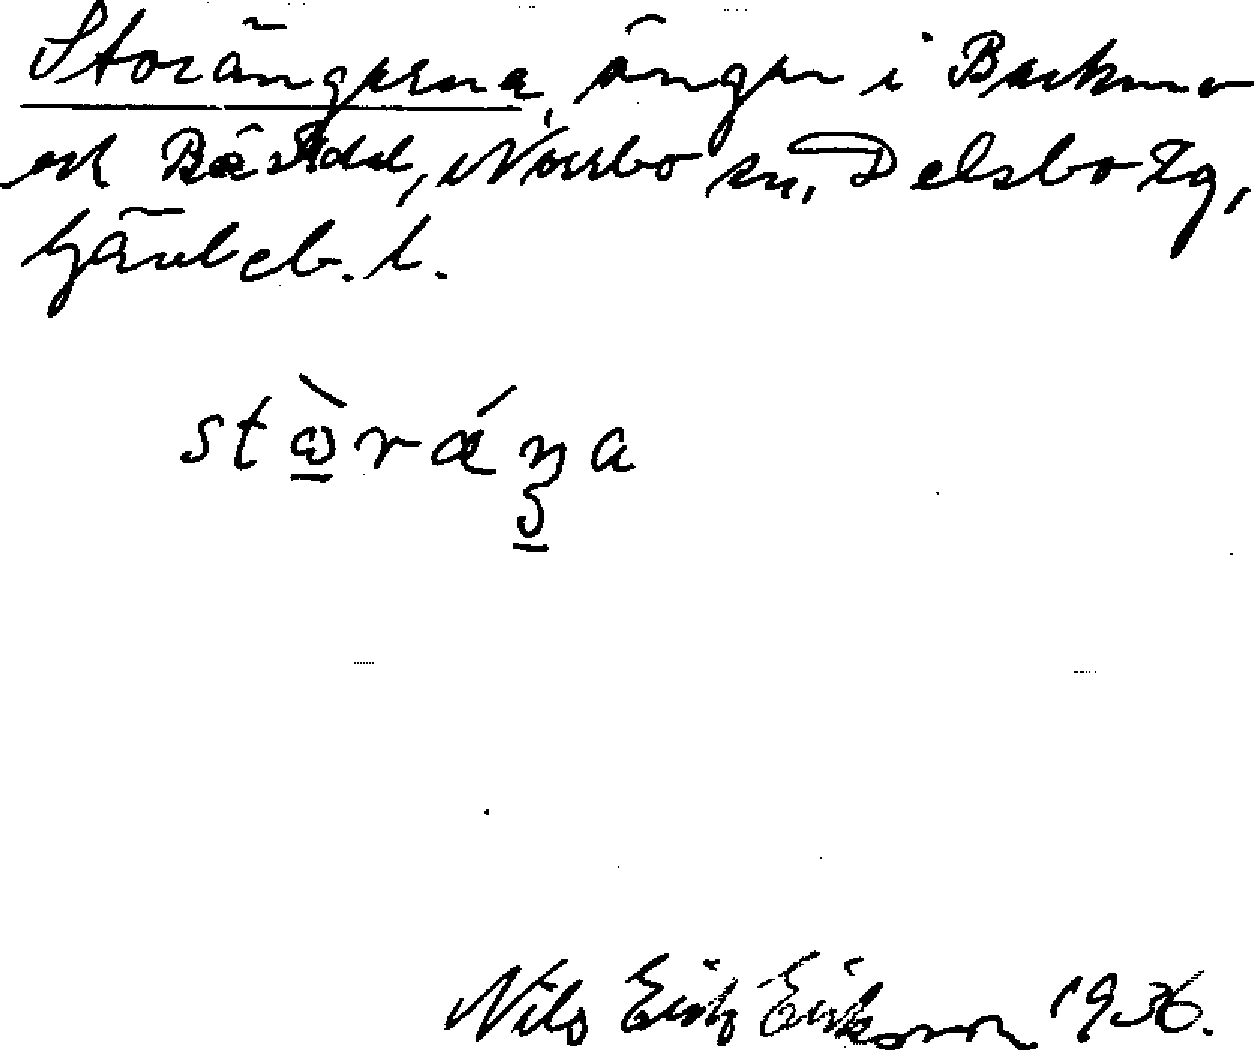 Storängerna, ängar i Backmo
och Bästdal, Norrbo sn, Delsbo tg,
Gävleb. l.
stὼ̱ràŋa
Nils Erik Eriksson 1936.